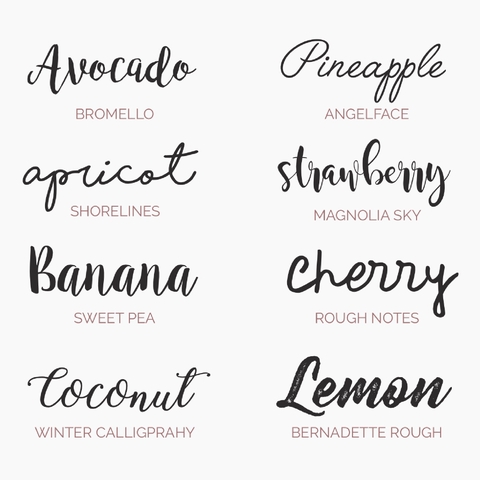 Avocado
BROMELLO
Pineapple
ANGELFACE
apricot
SHORELINES
strawberry
MAGNOLIA SKY
Banana
SWEET PEA
cherry
ROUGH NOTES
Coconut
WINTER CALLIGPRAHY
Lemon
BERNADETTE ROUGH